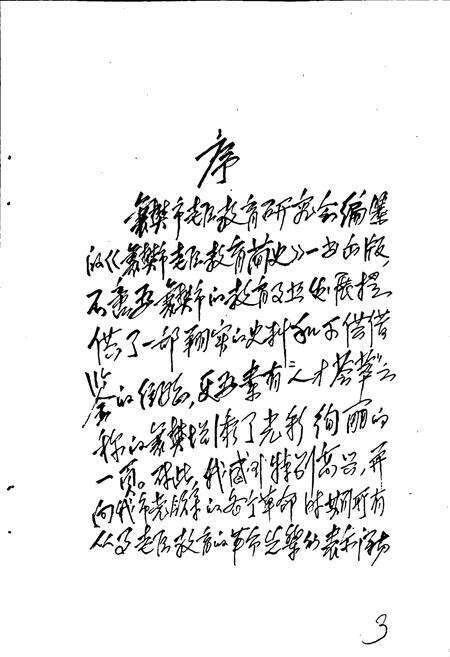 序
襄樊市老区教育研究会编纂
的《襄樊市老区教育简史》一书出版,
不啻为襄樊市的教育事业发展提
供了一部翔实的史料和可供借
鉴的经验,更为素有“人才荟萃”之
称的襄樊增添了光彩绚丽的
一页。对此,我感到特别高兴,并
向我市老区的各个革命时期所有
从事老区教育的革命先辈的表示
3